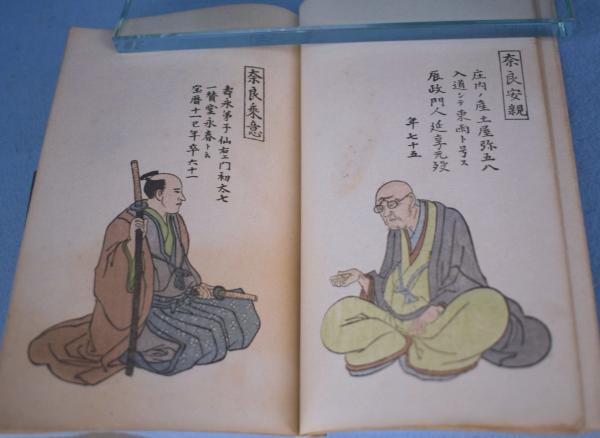 奈良安親
庄内ノ産土屋弥五八
入道シテ東雨ト号ス
辰政門人延享元歿
年七十五
奈良乗意
壽永弟子仙右ェ門初太七
一賛堂永春トム
宝暦十一巳年卒六十一